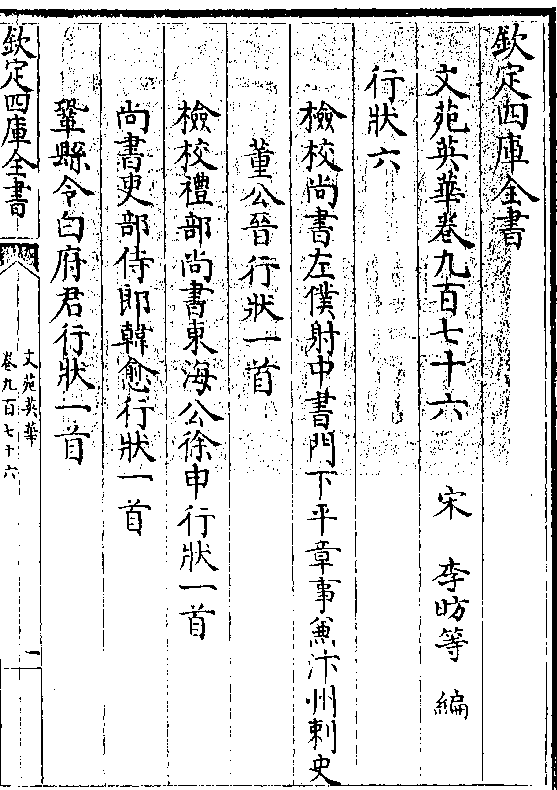 欽定四庫全書
文苑英華卷九百七十六 宋 李昉等 編
行狀六
檢校尚書左僕射中書門下平章事兼汴州刺史
董公晉行狀一首
檢校禮部尚書東海公徐申行狀一首
尚書吏部侍郎韓愈行狀一首
鞏縣令白府君行狀一首
欽定四庫全書
文苑英華
卷九百七十六
一